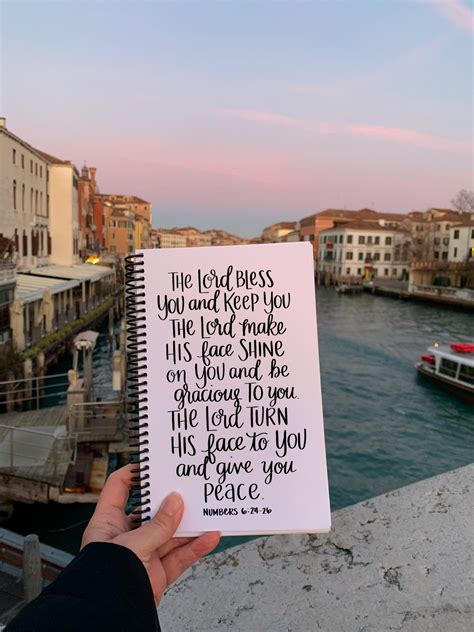 THE LORD BLESS
YOU and KEEP YOU
THE LORD make
HIS face SHINE
on YOU and be
gracious TO you.
THE LORD TURN
HIS face to YOU
and give you
Peace.
NUMBERS 6:24-26